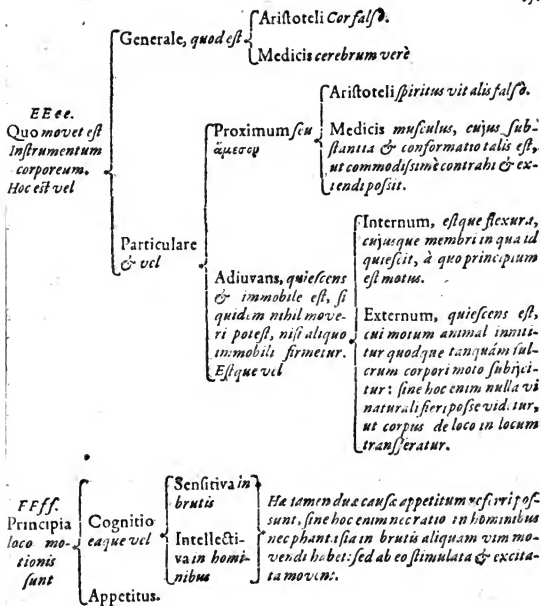 EEee.
Quo movet eſt
Inſtrumentum
corporeum.
Hoc eſt vel
Generale, quod eſt
Ariſtoteli Cor falſò.
Medicis cerebrum verè
Particulare
& vel
Proximum ſeu
ἄμεσον
Ariſtoteli ſpiritus vitalis falſò.
Medicis muſculus, cujus ſub-
ſtantia & conformatio talis eſt,
ut commodiſsimè contrahi & ex-
tendi poſsit.
Adiuvans, quieſcens
& immobile eſt, ſi
quidem nihil move-
ri poteſt, niſi aliquo
immobili firmetur.
Eſtque vel
Internum, eſtque flexura,
cujusque membri in qua id
quieſcit, à quo principium
eſt motus.
Externum, quieſcens eſt,
cui motum animal inniti-
tur quodque tanquám ful-
crum corpori moto ſubijci-
tur: ſine hoc enim nulla vi
naturali fieri poſſe vid.tur,
ut corpus de loco in locum
tranſferatur.
FFff.
Principia
loco mo-
tionis
ſunt
Cognitio
eaque vel
Senſitiva in
brutis
Intellecti-
va in homi-
nibus
Hæ tamen duæ cauſæ appetitum referri poſ-
ſunt, ſine hoc enim nec ratio in hominibus
nec phantaſia in brutis aliquam vim mo-
vendi habet: ſed ab eo ſtimulata & excita-
ta movent.
Appetitus.